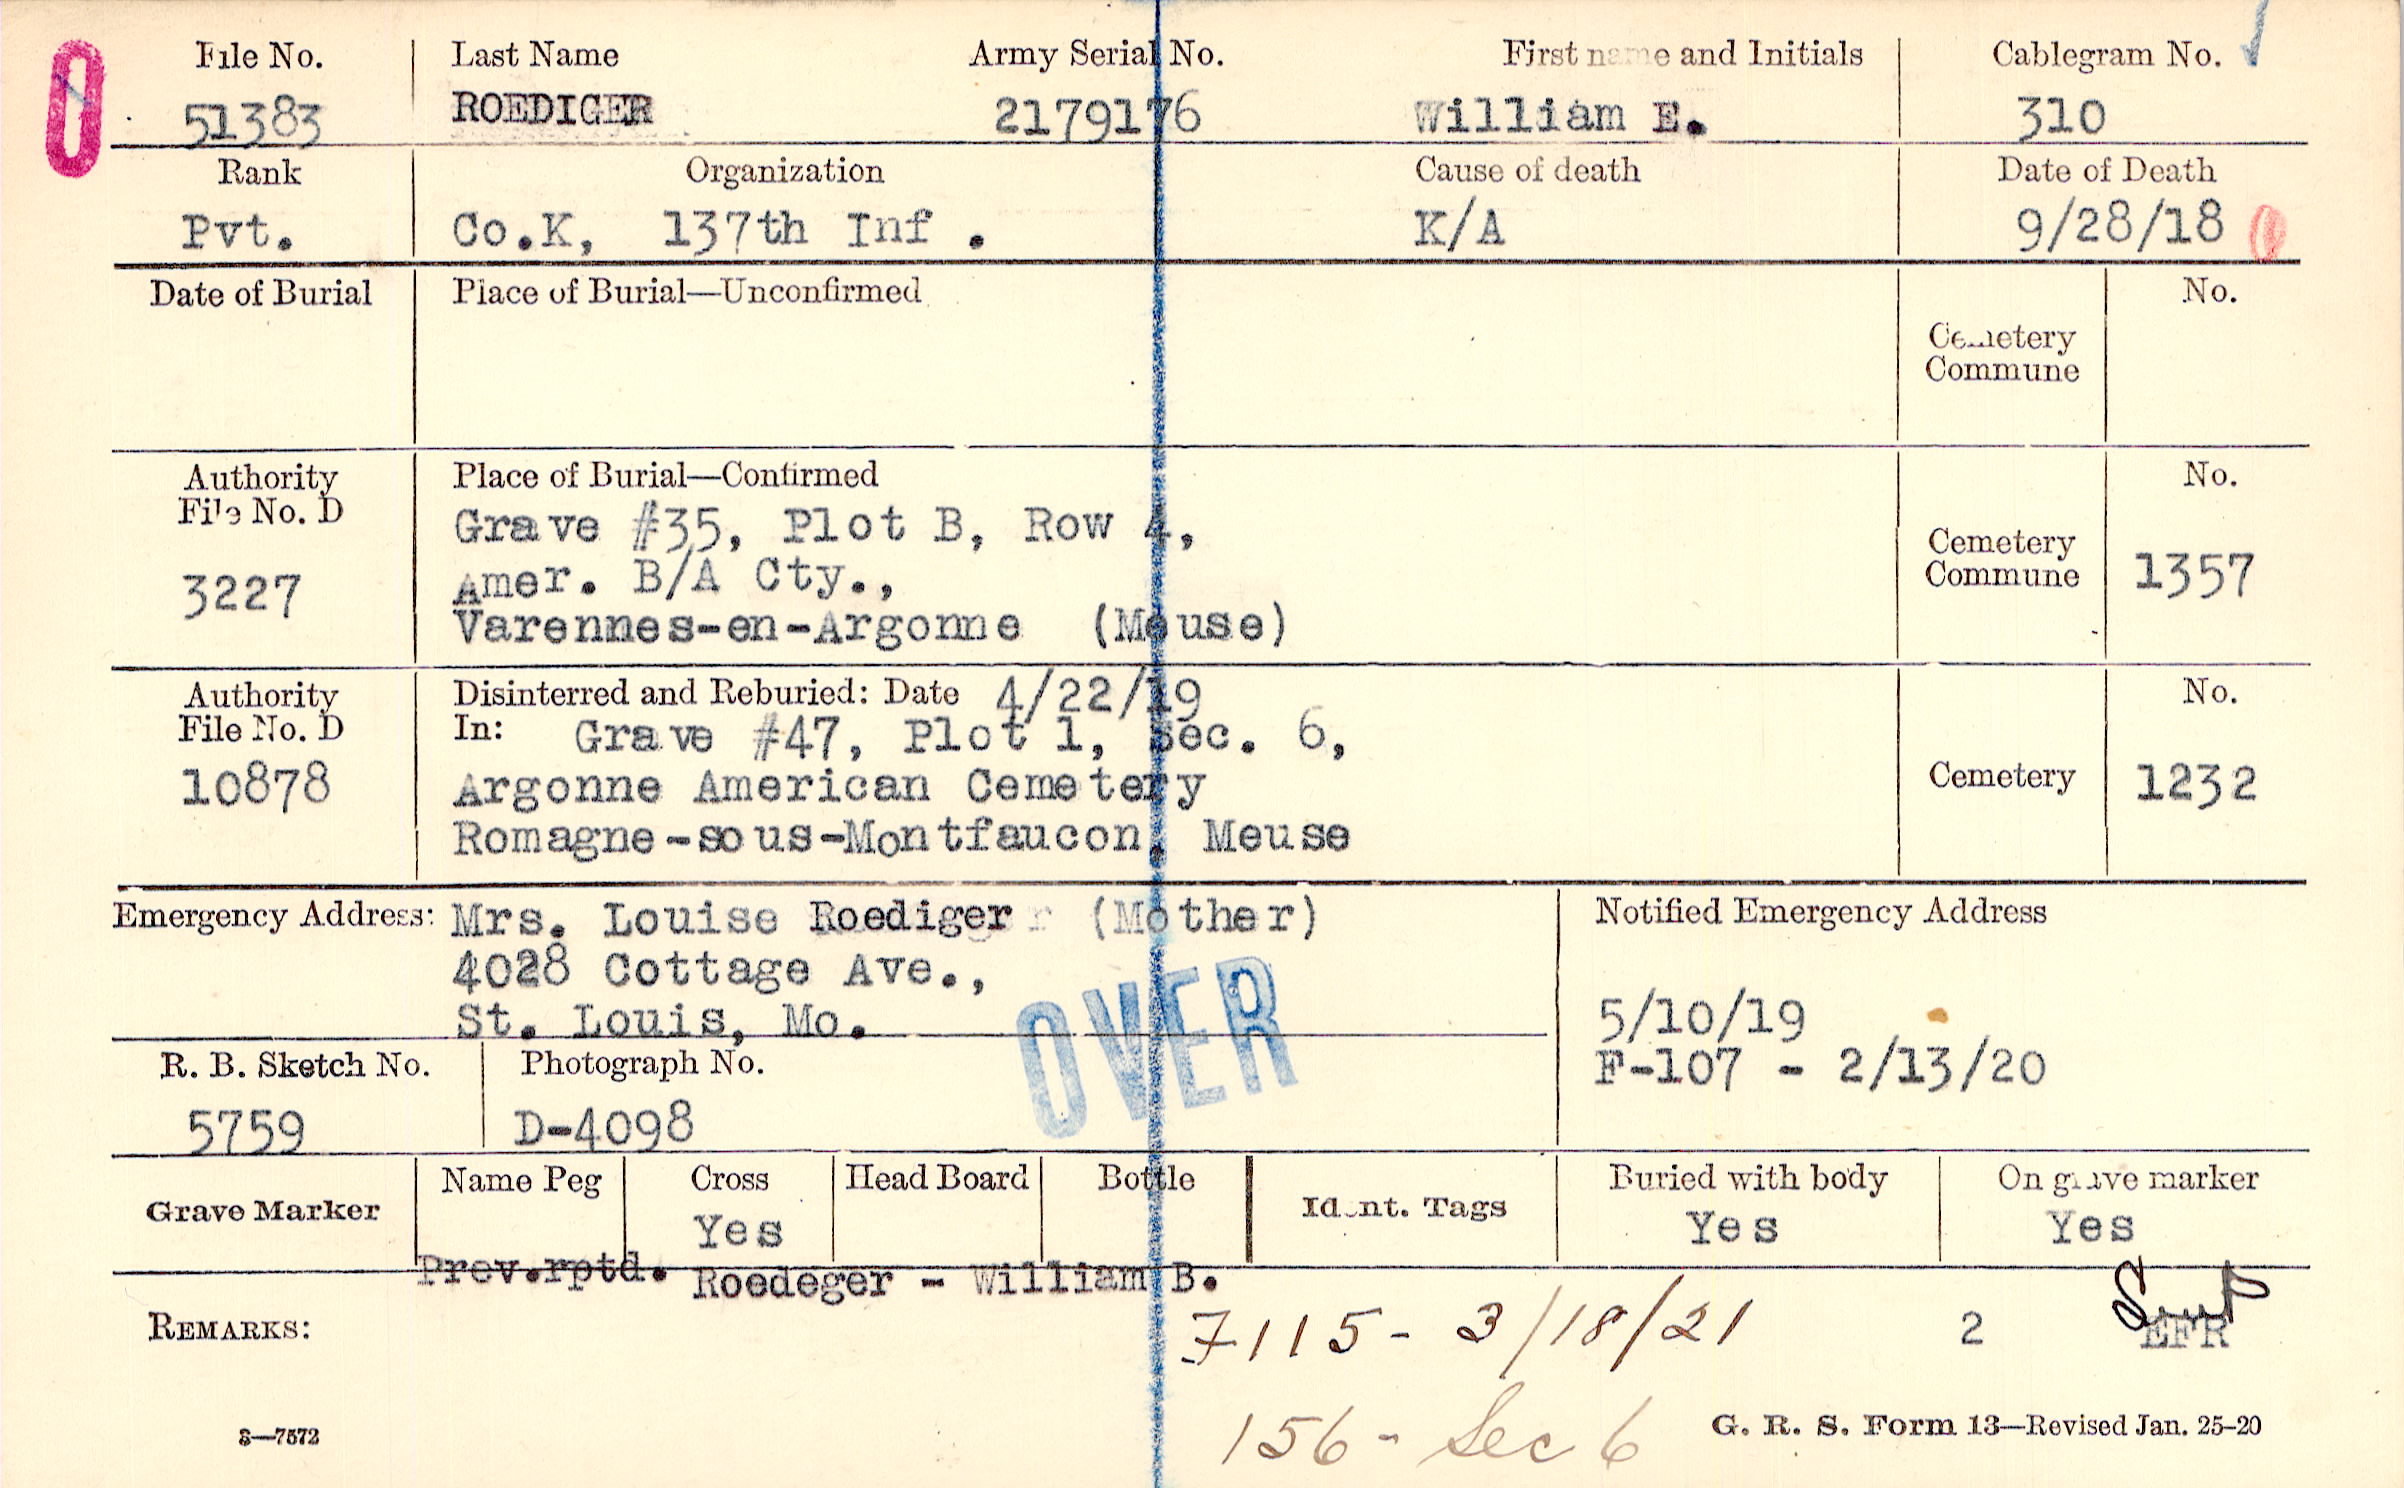 File No. Last Name Army Serial No. First name and Initials Cablegram No.
51383 ROEDIGER 2179176 William E. 310
Rank Organization Cause of death Date of Death
Pvt. Co.K, 137th Inf . K/A 9/28/18
Date of Burial Place of Burial—Unconfirmed No.
Cemetery
Commune
Authority Place of Burial—Confirmed No.
File No. D
Grave #35, Plot B, Row 4,
Cemetery
Commune 1357
3227 Amer. B/A Cty.,
Varennes-en-Argonne (Meuse)
Authority Disinterred and Reburied: Date 4/22/19 No.
File No. D In: Grave #47, Plot 1, Sec. 6,
10878 Argonne American Cemetery Cemetery 1232
Romagne-sous-Montfaucon, Meuse
Emergency Address: Mrs. Louise Roediger (Mother) Notified Emergency Address
4028 Cottage Ave.,
St. Louis, Mo. 5/10/19
OVER
R. B. Sketch No. Photograph No. F-107 - 2/13/20
5759 D-4098
Grave Marker Name Peg Cross Head Board Bottle Ident. Tags Buried with body On grave marker
Yes Yes Yes
Prev.rptd. Roedeger - William B.
REMARKS: 7115- 3/18/21 2 EFR
156- Sec 6
3—7572 G. R. S. Form 13—Revised Jan. 25-20